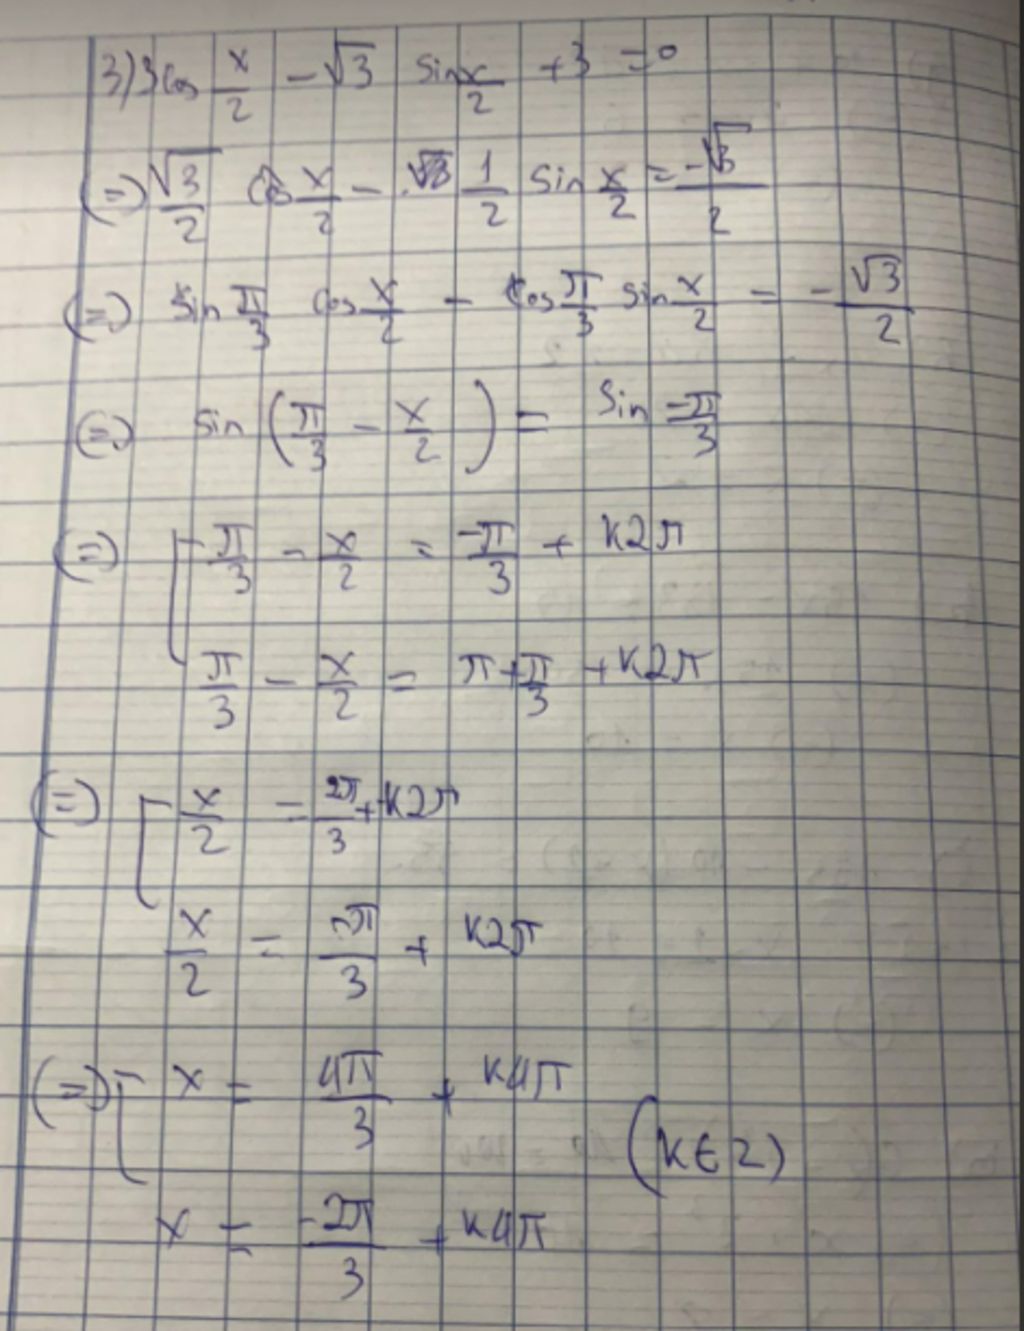 3) 3cos x/2 - √3 sin x/2 + 3 = 0
(=) √3/2 cos x/2 - 1/2 sin x/2 = -√3/2
(=) sin π/3 cos x/2 - cos π/3 sin x/2 = - √3/2
(=) sin (π/3 - x/2) = sin -π/3
(=) [ π/3 - x/2 = -π/3 + k2π
π/3 - x/2 = π + π/3 + k2π
(=) [ x/2 = 2π/3 + k2π
x/2 = -π/3 + k2π
(=) [ x = 4π/3 + k4π
(k ∈ Z)
x = -2π/3 + k4π